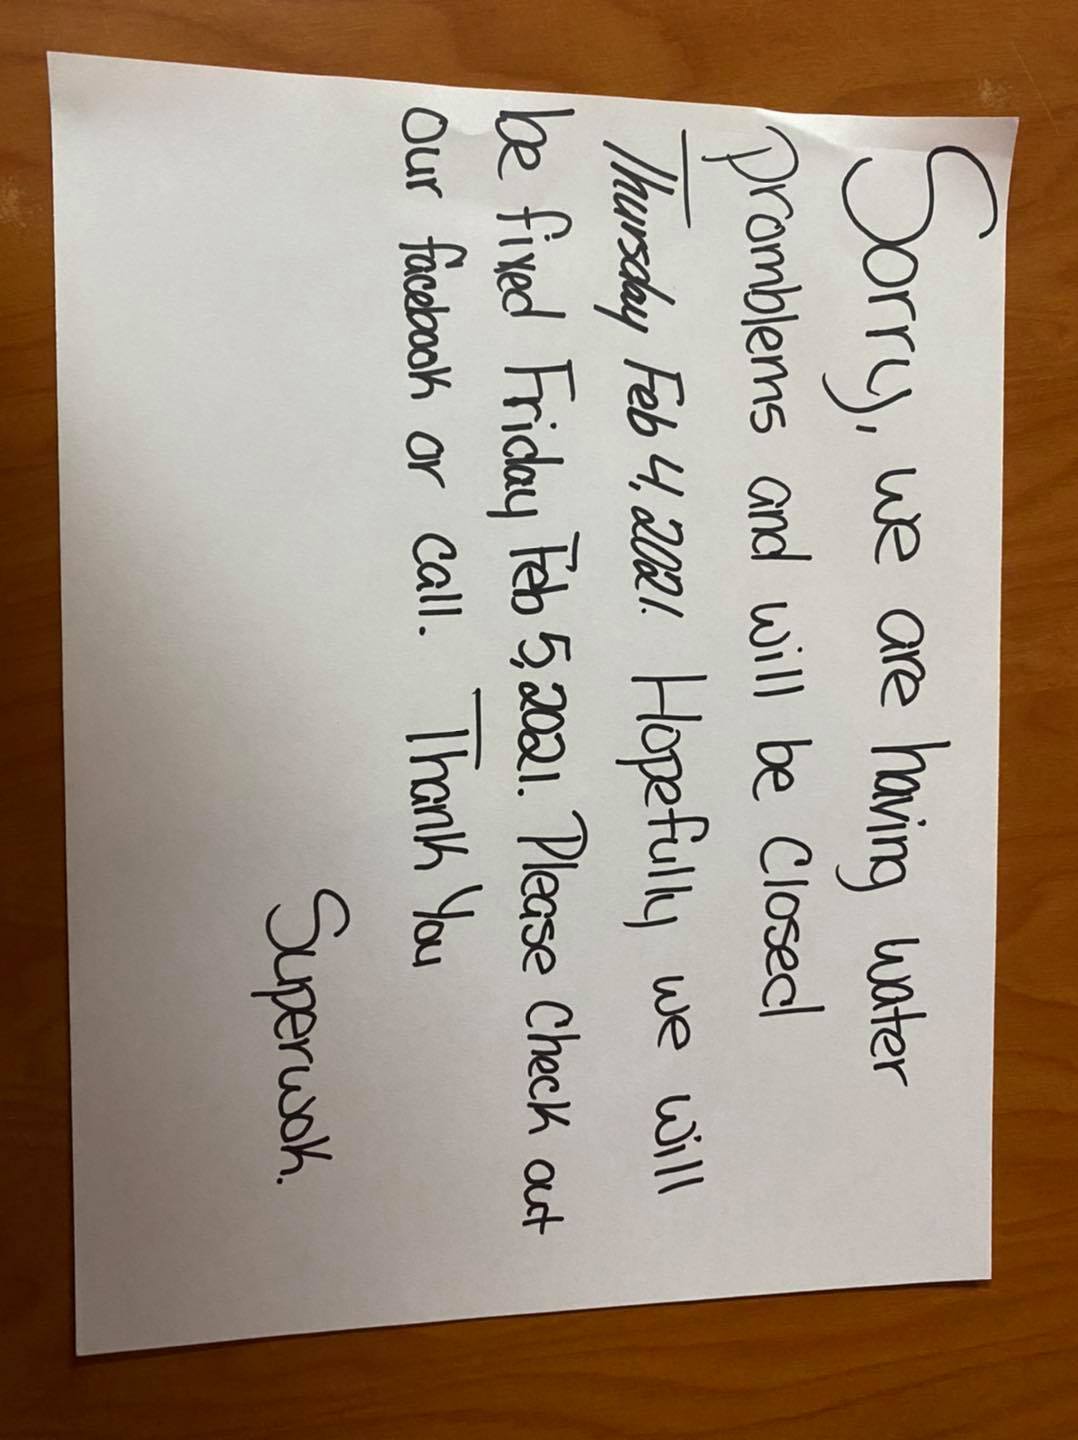 Sorry, we are having water
promblems and will be closed
Thursday Feb 4, 2021. Hopefully we will
be fixed Friday Feb 5, 2021. Please check out
our facebook or call. Thank You
Superwok.